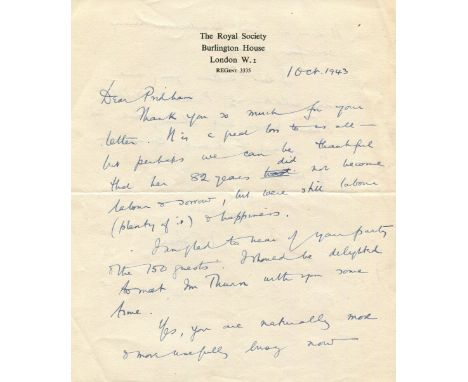 The Royal Society
Burlington House
London W.1
REGENT 3335
1 Oct. 1943
Dear Pridham
Thank you so much for your
letter. It is a great loss to us all —
but perhaps we can be thankful
that her 82 years did not become
labour & sorrow, but were still labour
(plenty of it) & happiness.
I am glad to hear of your party
& the 150 guests. I should be delighted
to meet Im Thurn with you some
time.
Yes, you are naturally more
& more usefully busy now